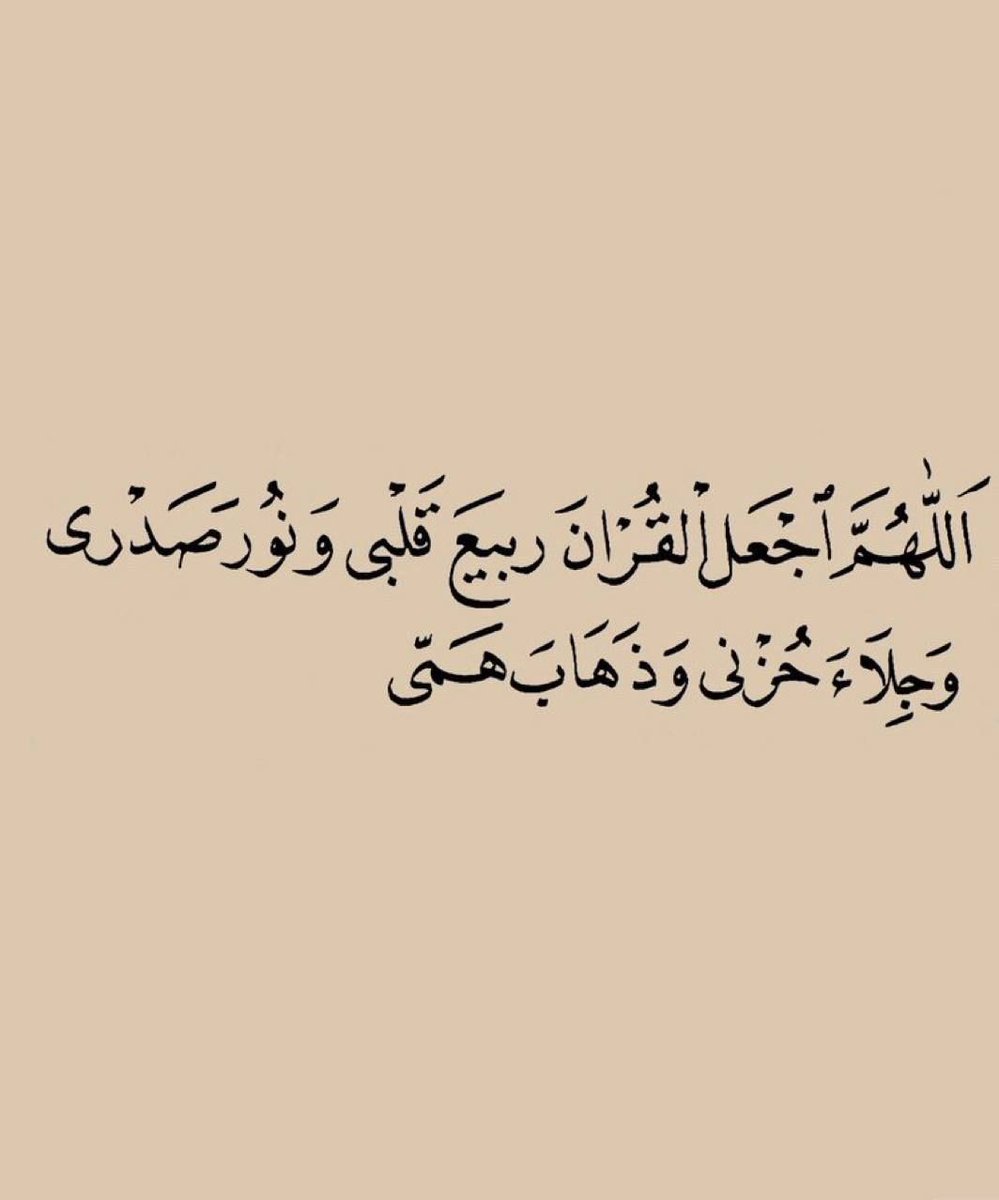 اَللّٰهُمَّ ٱجْعَلْ القُرْانَ رَبيعَ قَلْبى وَ نُورَ صَدْرى
وَجِلَاءَ حُزْنى وَذَهَابَ هَمّى